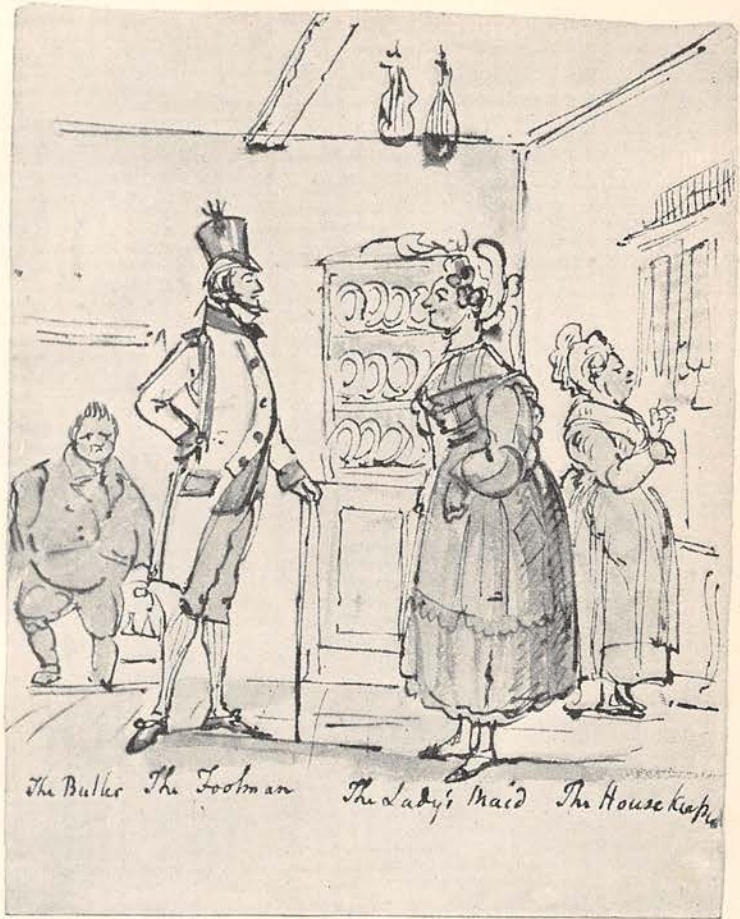 The Butler The Footman The Lady's Maid The Housekeeper